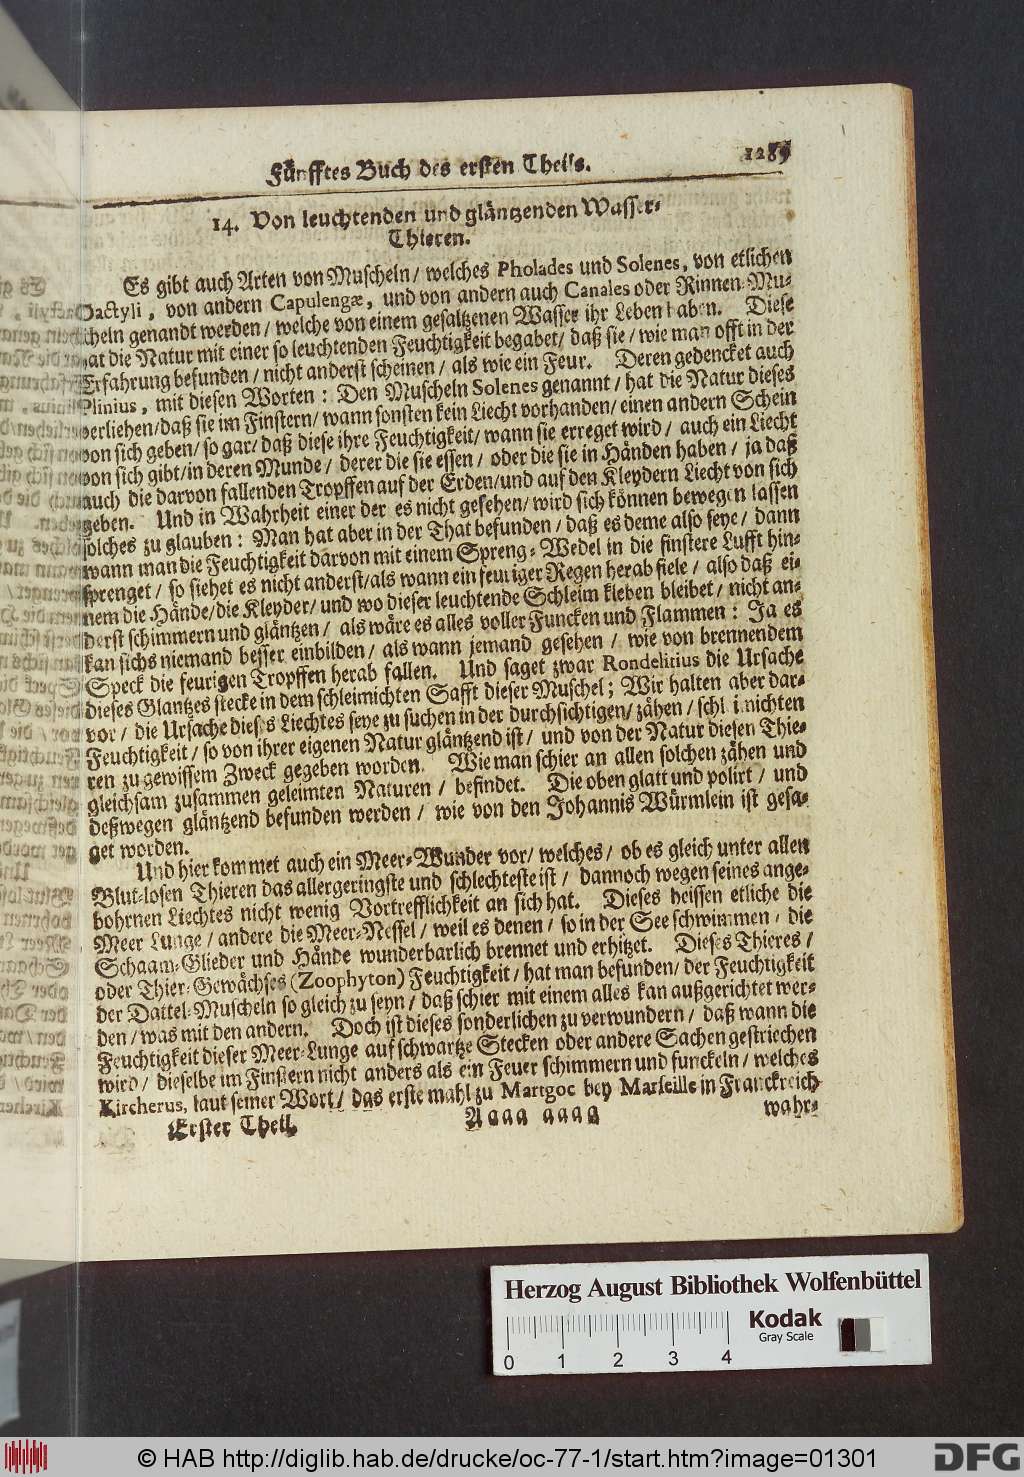 Fünfftes Buch des ersten Theils. 1289
14. Von leuchtenden und gläntzenden Wasser-
Thieren.
Es gibt auch Arten von Muscheln / welches Pholades und Solenes, von etlichen
Dactyli, von andern Capulengæ, und von andern auch Canales oder Rinnen-Mu-
scheln genandt werden / welche von einem gesaltzenen Wasser ihr Leben haben. Diese
hat die Natur mit einer so leuchtenden Feuchtigkeit begabet / daß sie / wie man offt in der
Erfahrung befunden / nicht anderst scheinen / als wie ein Feur. Deren gedencket auch
Plinius, mit diesen Worten: Den Muscheln Solenes genannt / hat die Natur dieses
verliehen / daß sie im Finstern / wann sonsten kein Liecht vorhanden / einen andern Schein
von sich geben / so gar / daß diese ihre Feuchtigkeit / wann sie erreget wird / auch ein Liecht
von sich gibt / in deren Munde / derer die sie essen / oder die sie in Händen haben / ja daß
auch die darvon fallenden Tropffen auf der Erden / und auf den Kleydern Liecht von sich
geben. Und in Wahrheit einer der es nicht gesehen / wird sich können bewegen lassen
solches zu glauben: Man hat aber in der That befunden / daß es deme also seye / dann
wann man die Feuchtigkeit darvon mit einem Spreng-Wedel in die finstere Lufft hin-
sprenget / so siehet es nicht anderst / als wann ein feuriger Regen herab fiele / also daß ei-
nem die Hände / die Kleyder / und wo dieser leuchtende Schleim kleben bleibet / nicht an-
derst schimmern und gläntzen / als wäre es alles voller Funcken und Flammen: Ja es
kan sichs niemand besser einbilden / als wann jemand gesehen / wie von brennendem
Speck die feurigen Tropffen herab fallen. Und saget zwar Rondelitius die Ursache
dieses Glantzes stecke in dem schleimichten Safft dieser Muschel; Wir halten aber dar-
vor / die Ursache dieses Liechtes seye zu suchen in der durchsichtigen / zähen / schleimichten
Feuchtigkeit / so von ihrer eigenen Natur gläntzend ist / und von der Natur diesen Thie-
ren zu gewissem Zweck gegeben worden. Wie man schier an allen solchen zähen und
gleichsam zusammen geleimten Naturen / befindet. Die oben glatt und polirt / und
deßwegen gläntzend befunden werden / wie von den Johannis Würmlein ist gesa-
get worden.
Und hier kommet auch ein Meer-Wunder vor / welches / ob es gleich unter allen
Blut-losen Thieren das allergeringste und schlechteste ist / dannoch wegen seines ange-
bohrnen Liechtes nicht wenig Vortrefflichkeit an sich hat. Dieses heissen etliche die
Meer Lunge / andere die Meer-Nessel / weil es denen / so in der See schwimmen / die
Schaam-Glieder und Hände wunderbarlich brennet und erhitzet. Dieses Thieres /
oder Thier-Gewächses (Zoophyton) Feuchtigkeit / hat man befunden / der Feuchtigkeit
der Dattel-Muscheln so gleich zu seyn / daß schier mit einem alles kan außgerichtet wer-
den / was mit den andern. Doch ist dieses sonderlichen zu verwundern / daß wann die
Feuchtigkeit dieser Meer-Lunge auf schwartze Stecken oder andere Sachen gestriechen
wird / dieselbe im Finstern nicht anders als ein Feuer schimmern und funckeln / welches
Kircherus, laut seiner Wort / das erste mahl zu Martgoc bey Marseille in Franckreich
Erster Theil. Aaaa aaaa wahr-
Herzog August Bibliothek Wolfenbüttel
Kodak
Gray Scale
0 1 2 3 4
© HAB http://diglib.hab.de/drucke/oc-77-1/start.htm?image=01301
DFG